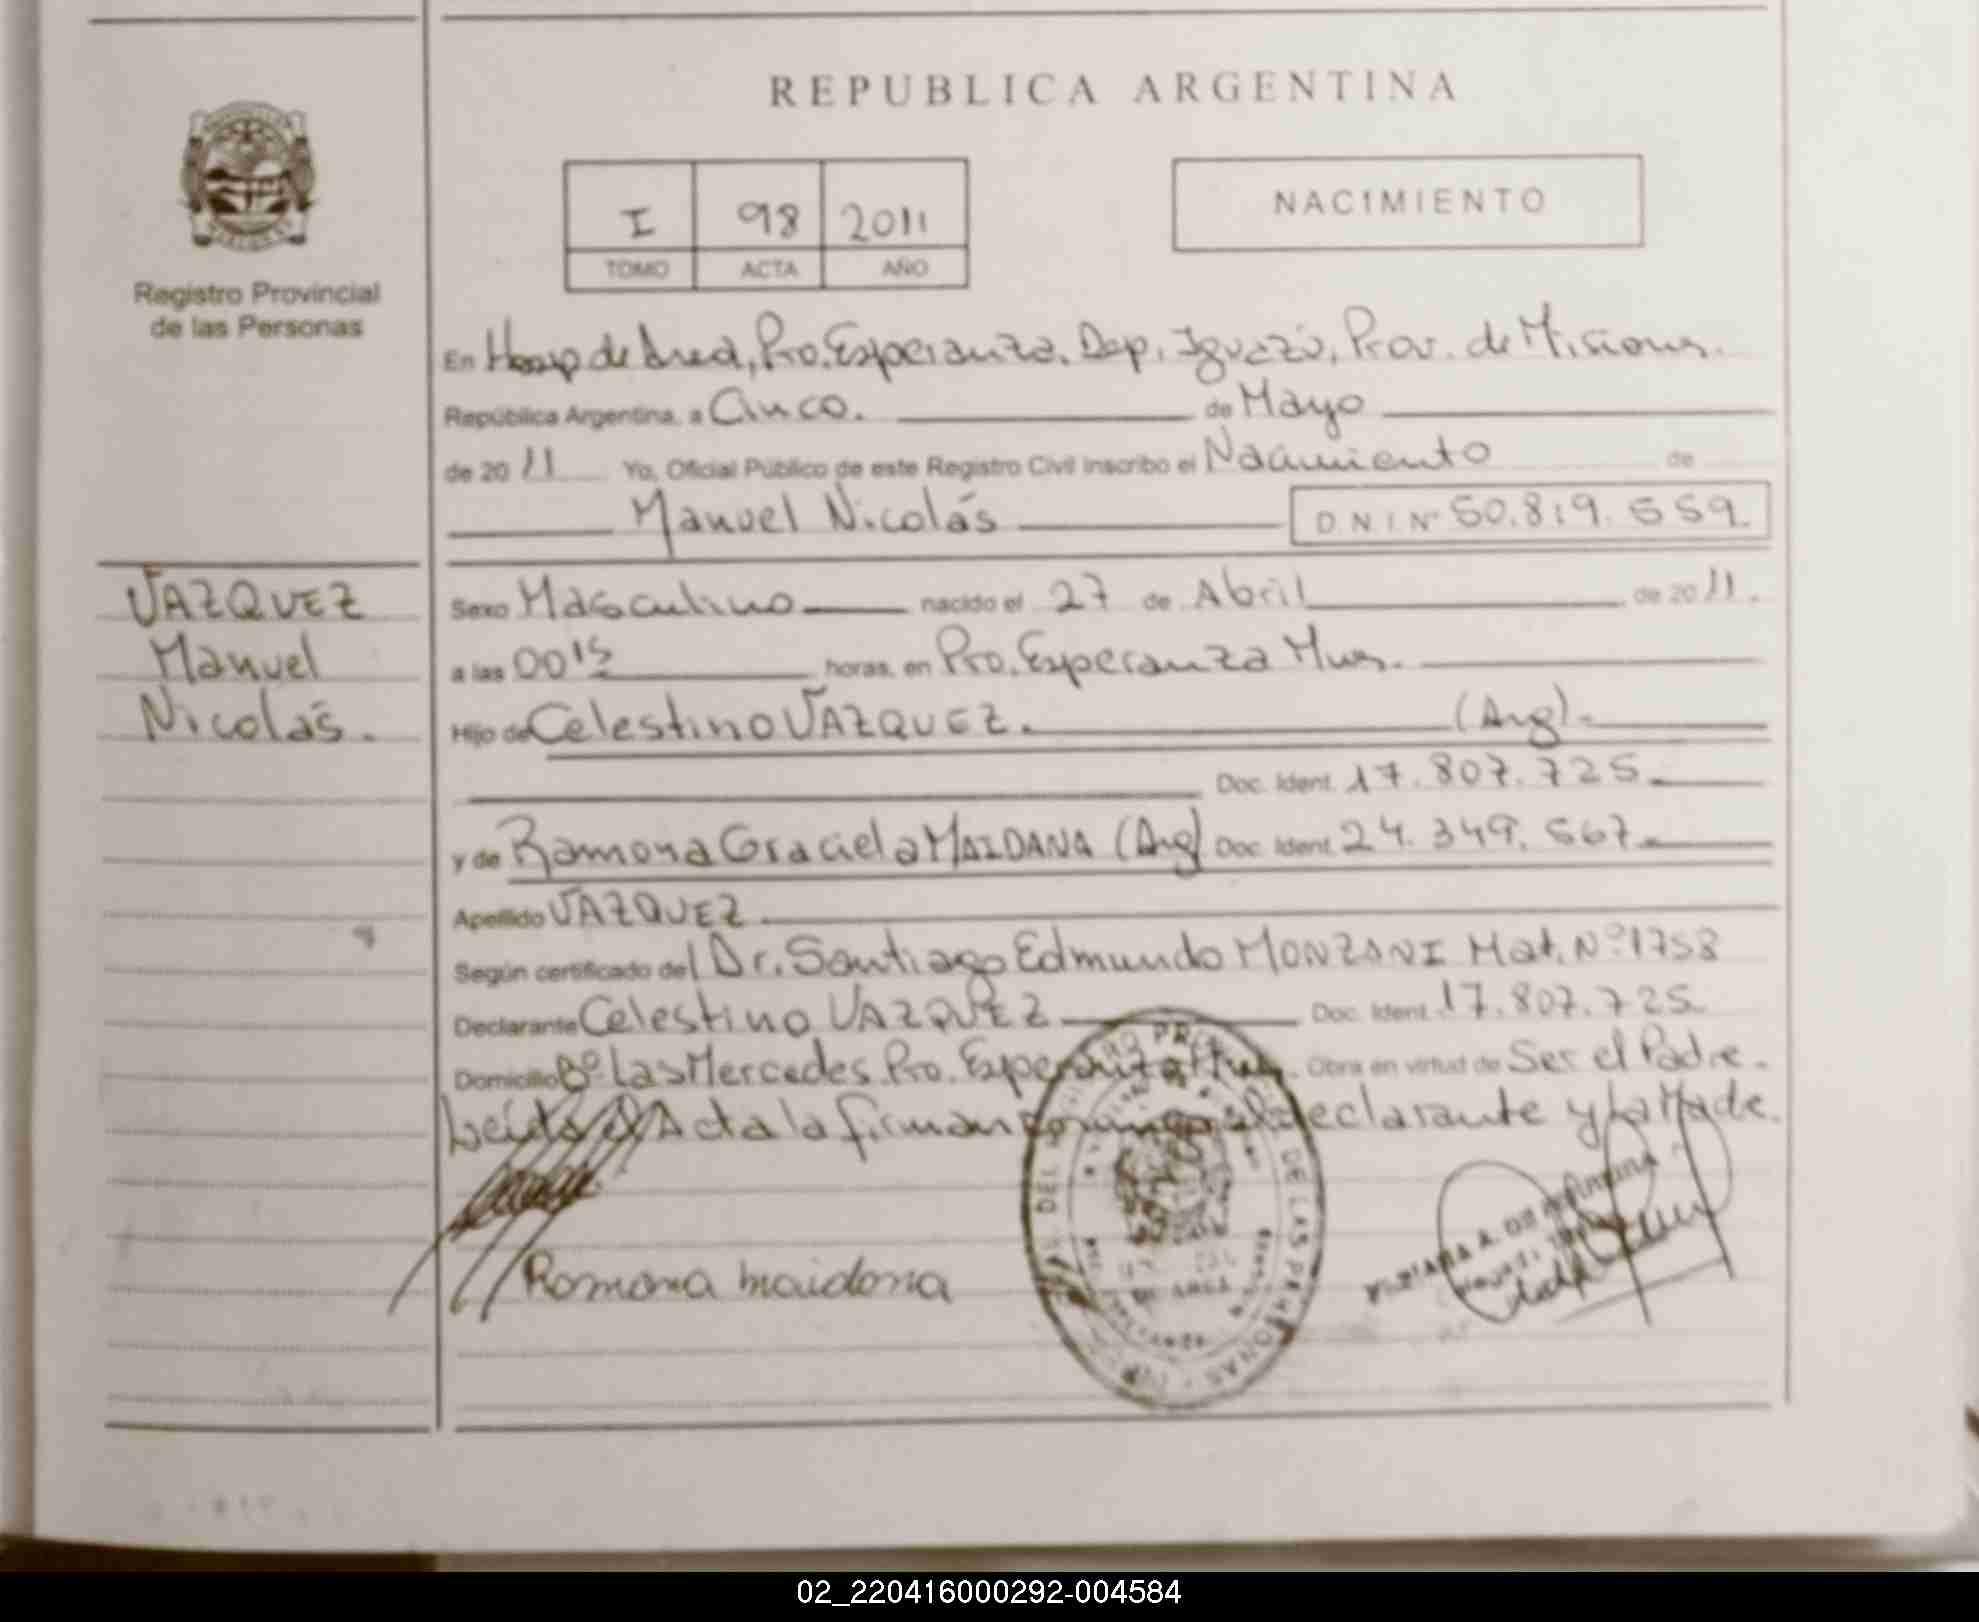 REPUBLICA ARGENTINA
I 98 2011
TOMO ACTA AÑO
NACIMIENTO
Registro Provincial
de las Personas
En Hosp de Area, Pto. Esperanza. Dep. Iguazú, Prov. de Misiones.
República Argentina, a Cinco. de Mayo
de 2011 Yo, Oficial Público de este Registro Civil inscribo el Nacimiento de
Manuel Nicolás D.N.I. Nº 50.819.559.
VAZQUEZ
Manuel
Nicolás.
Sexo Masculino nacido el 27 de Abril de 2011.
a las 0015 horas, en Pto. Esperanza Mnes.
Hijo de Celestino VAZQUEZ. (Arg).
Doc. Ident. 17.807.725
y de Ramona Graciela MAIDANA (Arg) Doc. Ident. 24.349.567
Apellido VAZQUEZ.
Según certificado del Dr. Santiago Edmundo MONZANI Mat. Nº 1758
Declarante Celestino VAZQUEZ Doc. Ident. 17.807.725
Domicilio Bº Las Mercedes Pto. Esperanza Mnes. Obra en virtud de Ser el Padre.
Leída el Acta la firman conmigo el declarante y la Made.
Ramona maidana
DEL DE LAS PERSONAS
02_220416000292-004584